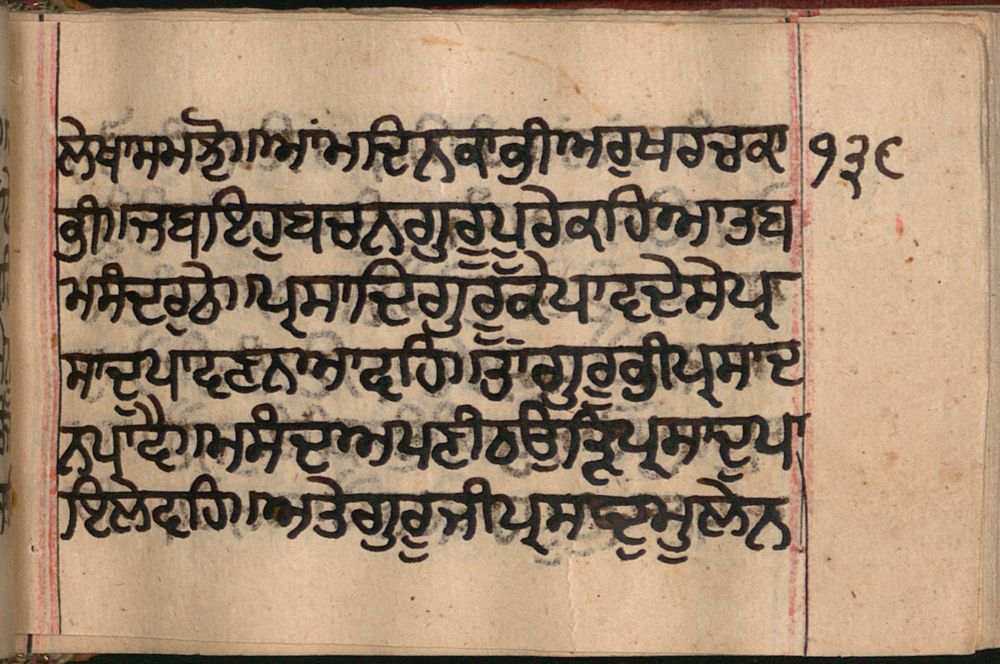 ਲੇਖਾਸਮਝੋ॥ਆਂਮਦਿਨਕਾਕੀਅਰੁਖਰਚਕਾ ੧੩੯
ਕੀ॥ਜਬਇਹੁਬਚਨਗੁਰੂਪੁਰੇਕਹਿਆਤਬ
ਮਸੰਦਰੁਠੇ॥ਪ੍ਰਸਾਦਿਗੁਰੂਕੇਪਾਵਦੇਸੇਪ੍ਰ
ਸਾਦੁਪਾਵਣਨਆਵਹਿ॥ਤਾਂਗੁਰੁਕੀਪ੍ਰਸਾਦ
ਨਪਾਵੈ॥ਮਸੰਦਅਪਣੀਠਉੜਿਪ੍ਰਸਾਦੁਪਾ
ਇਲੇਵਹਿ॥ਅਤੇਗੁਰੁਜੀਪ੍ਰਸਾਦੁਮੁਲੇਨ